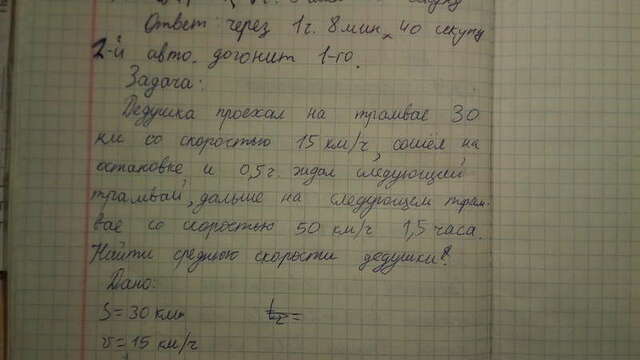 Ответ: через 1 г. 8 мин. 40 секунд
2-й авто. догонит 1-го.
Задача:
Дедушка проехал на трамвае 30
км со скоростью 15 км/ч, сошёл на
остановке и 0,5 г. ждал следующей
трамвай, дальше на следующем трам-
вае со скоростью 50 км/ч 1,5 часа.
Найти среднюю скорости дедушки?
Дано:
S = 30 км
t₂ =
v = 15 км/ч